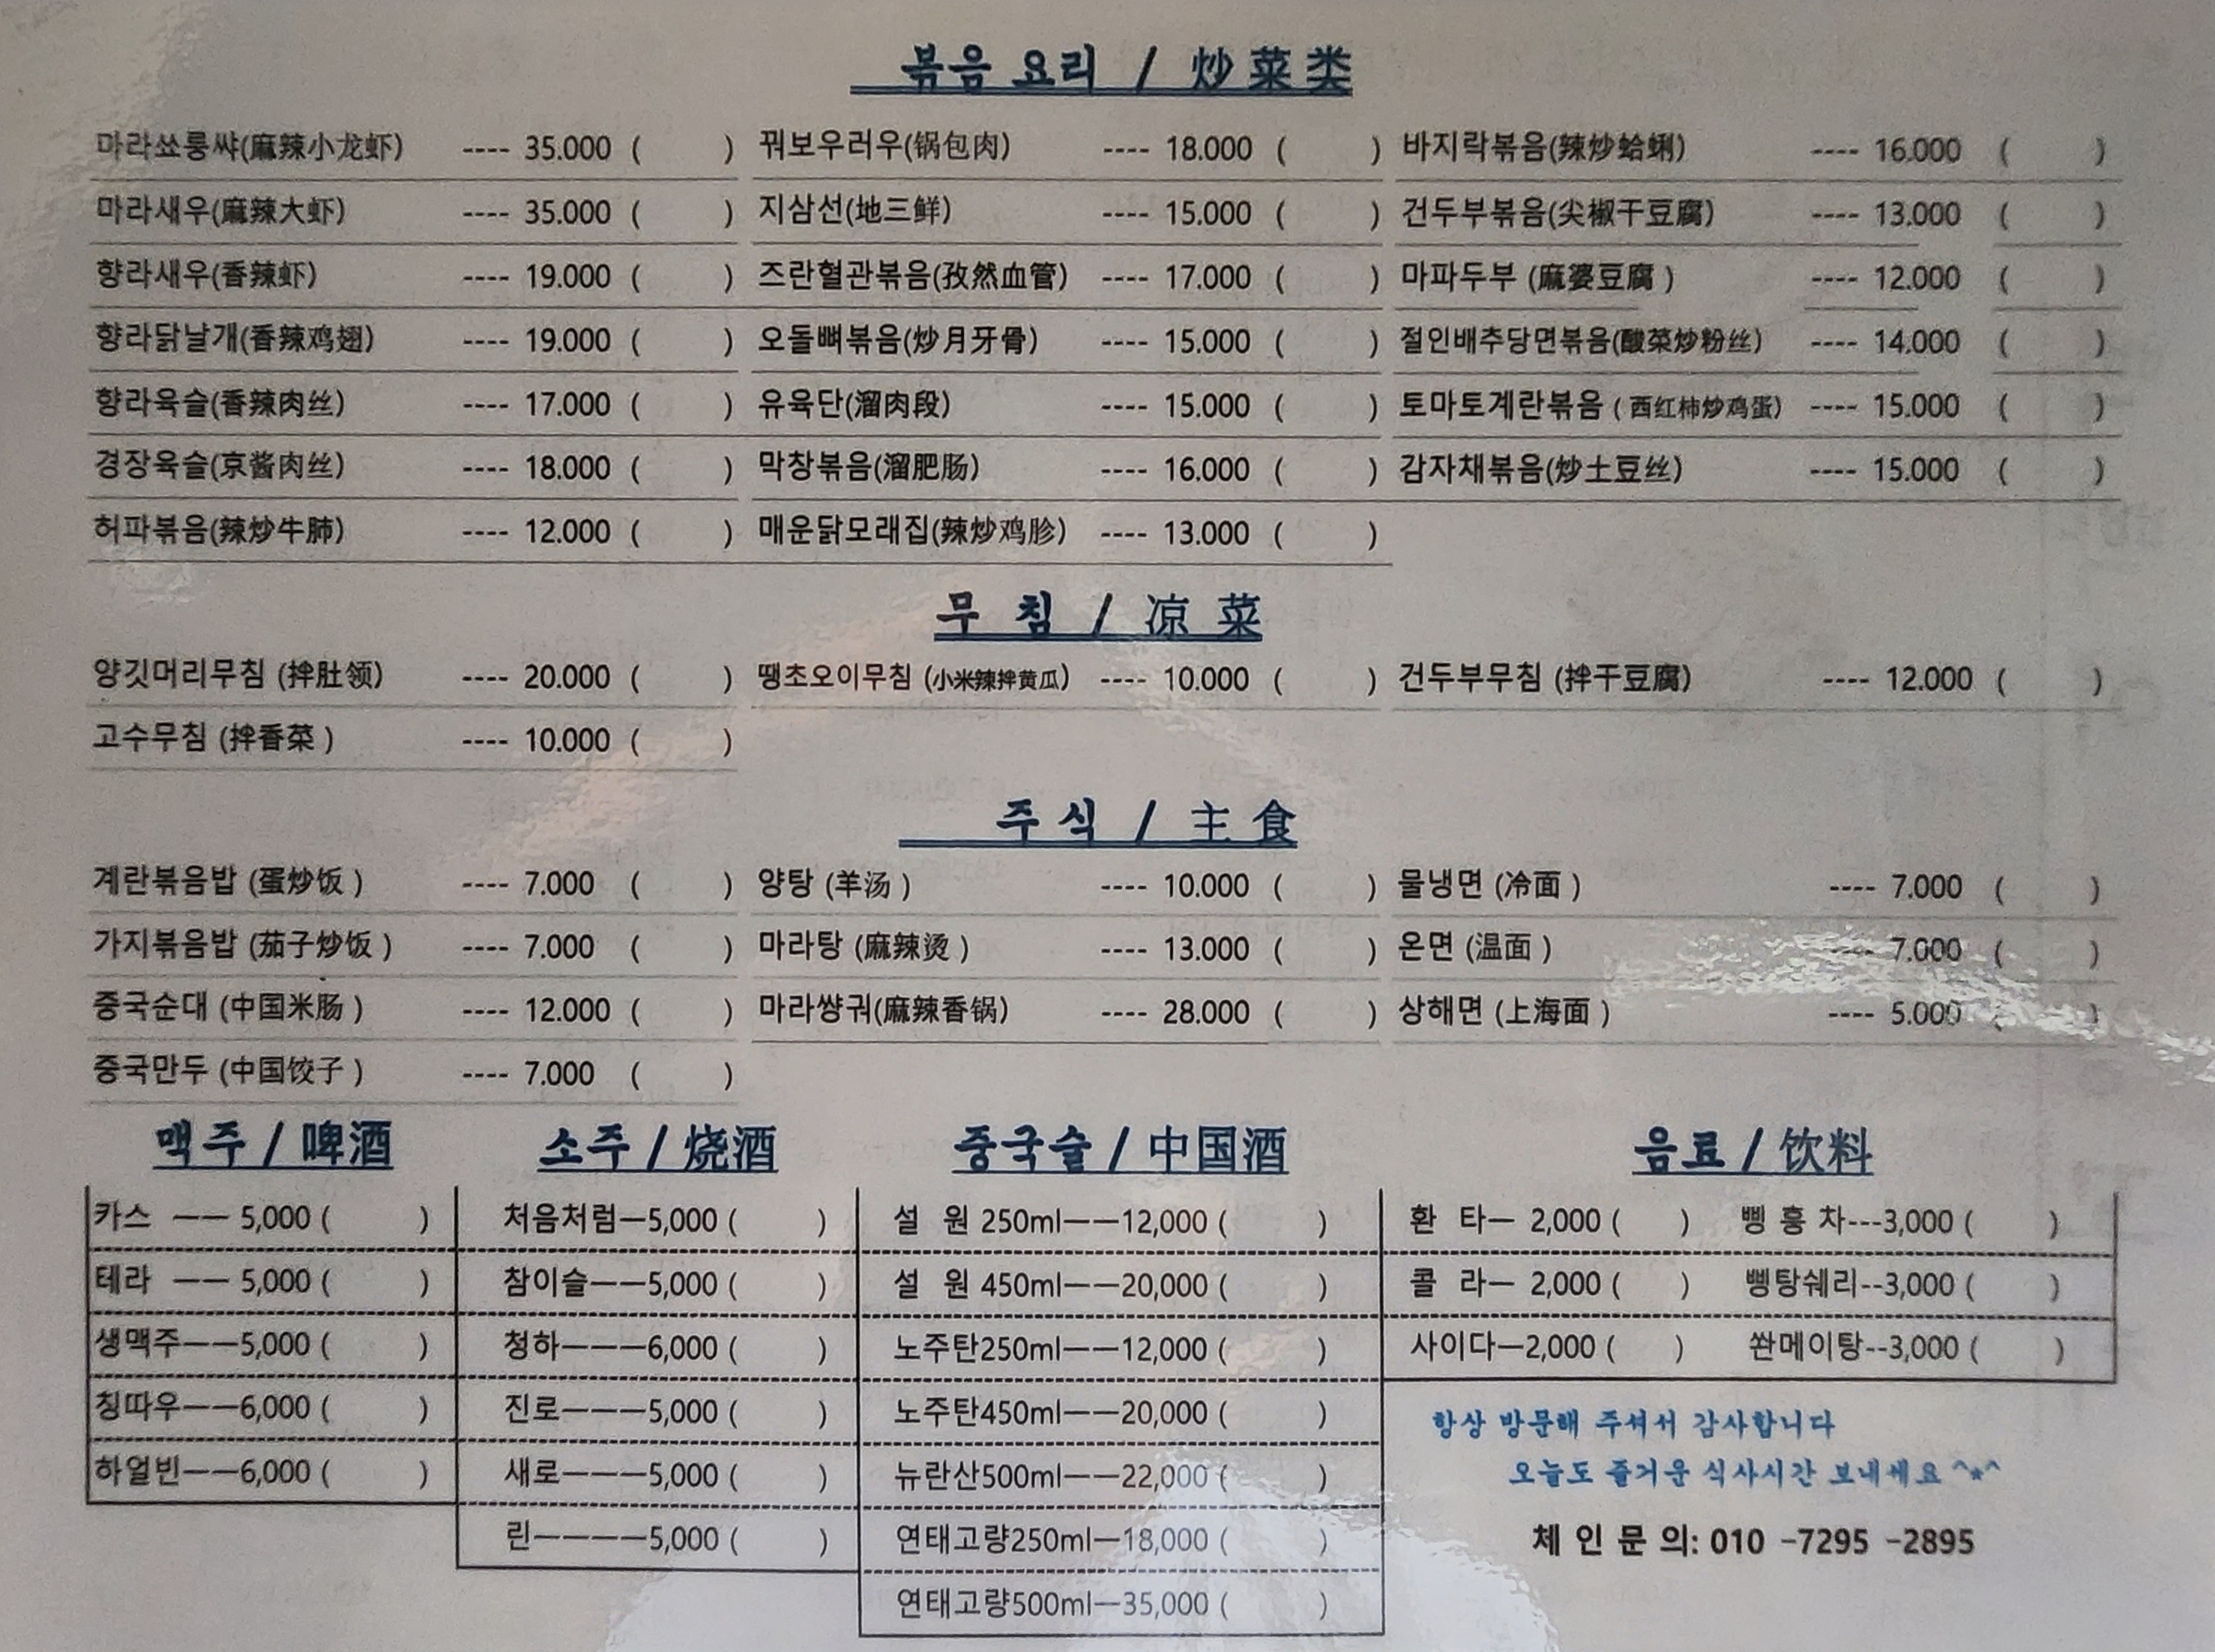 볶음 요리 / 炒菜类
마라쑈룽쌰(麻辣小龙虾) ---- 35.000 ( ) 꿔보우러우(锅包肉) ---- 18.000 ( ) 바지락볶음(辣炒蛤蜊) ---- 16.000 ( )
마라새우(麻辣大虾) ---- 35.000 ( ) 지삼선(地三鲜) ---- 15.000 ( ) 건두부볶음(尖椒干豆腐) ---- 13.000 ( )
향라새우(香辣虾) ---- 19.000 ( ) 즈란혈관볶음(孜然血管) ---- 17.000 ( ) 마파두부 (麻婆豆腐 ) ---- 12.000 ( )
향라닭날개(香辣鸡翅) ---- 19.000 ( ) 오돌뼈볶음(炒月牙骨) ---- 15.000 ( ) 절인배추당면볶음(酸菜炒粉丝) ---- 14.000 ( )
향라육슬(香辣肉丝) ---- 17.000 ( ) 유육단(溜肉段) ---- 15.000 ( ) 토마토계란볶음 ( 西红柿炒鸡蛋) ---- 15.000 ( )
경장육슬(京酱肉丝) ---- 18.000 ( ) 막창볶음(溜肥肠) ---- 16.000 ( ) 감자채볶음(炒土豆丝) ---- 15.000 ( )
허파볶음(辣炒牛肺) ---- 12.000 ( ) 매운닭모래집(辣炒鸡胗) ---- 13.000 ( )
무 침 / 凉 菜
양깃머리무침 (拌肚领) ---- 20.000 ( ) 땡초오이무침 (小米辣拌黄瓜) ---- 10.000 ( ) 건두부무침 (拌干豆腐) ---- 12.000 ( )
고수무침 (拌香菜 ) ---- 10.000 ( )
주 식 / 主 食
계란볶음밥 (蛋炒饭 ) ---- 7.000 ( ) 양탕 (羊汤 ) ---- 10.000 ( ) 물냉면 (冷面 ) ---- 7.000 ( )
가지볶음밥 (茄子炒饭 ) ---- 7.000 ( ) 마라탕 (麻辣烫 ) ---- 13.000 ( ) 온면 (温面 ) ---- 7.000 ( )
중국순대 (中国米肠 ) ---- 12.000 ( ) 마라썅궈(麻辣香锅) ---- 28.000 ( ) 상해면 (上海面 ) ---- 5.000 ( )
중국만두 (中国饺子 ) ---- 7.000 ( )
맥주 / 啤酒 소주 / 烧酒 중국술 / 中国酒 음료 / 饮料
카스 —— 5,000 ( ) 처음처럼—5,000 ( ) 설 원 250ml——12,000 ( ) 환 타— 2,000 ( ) 삥 홍 차---3,000 ( )
테라 —— 5,000 ( ) 참이슬——5,000 ( ) 설 원 450ml——20,000 ( ) 콜 라— 2,000 ( ) 삥탕쉐리--3,000 ( )
생맥주——5,000 ( ) 청하———6,000 ( ) 노주탄250ml——12,000 ( ) 사이다—2,000 ( ) 쏸메이탕--3,000 ( )
칭따우——6,000 ( ) 진로———5,000 ( ) 노주탄450ml——20,000 ( )
하얼빈——6,000 ( ) 새로———5,000 ( ) 뉴란산500ml——22,000 ( )
린————5,000 ( ) 연태고량250ml—18,000 ( )
연태고량500ml—35,000 ( )
항상 방문해 주셔서 감사합니다
오늘도 즐거운 식사시간 보내세요 ^*^
체 인 문 의: 010 -7295 -2895